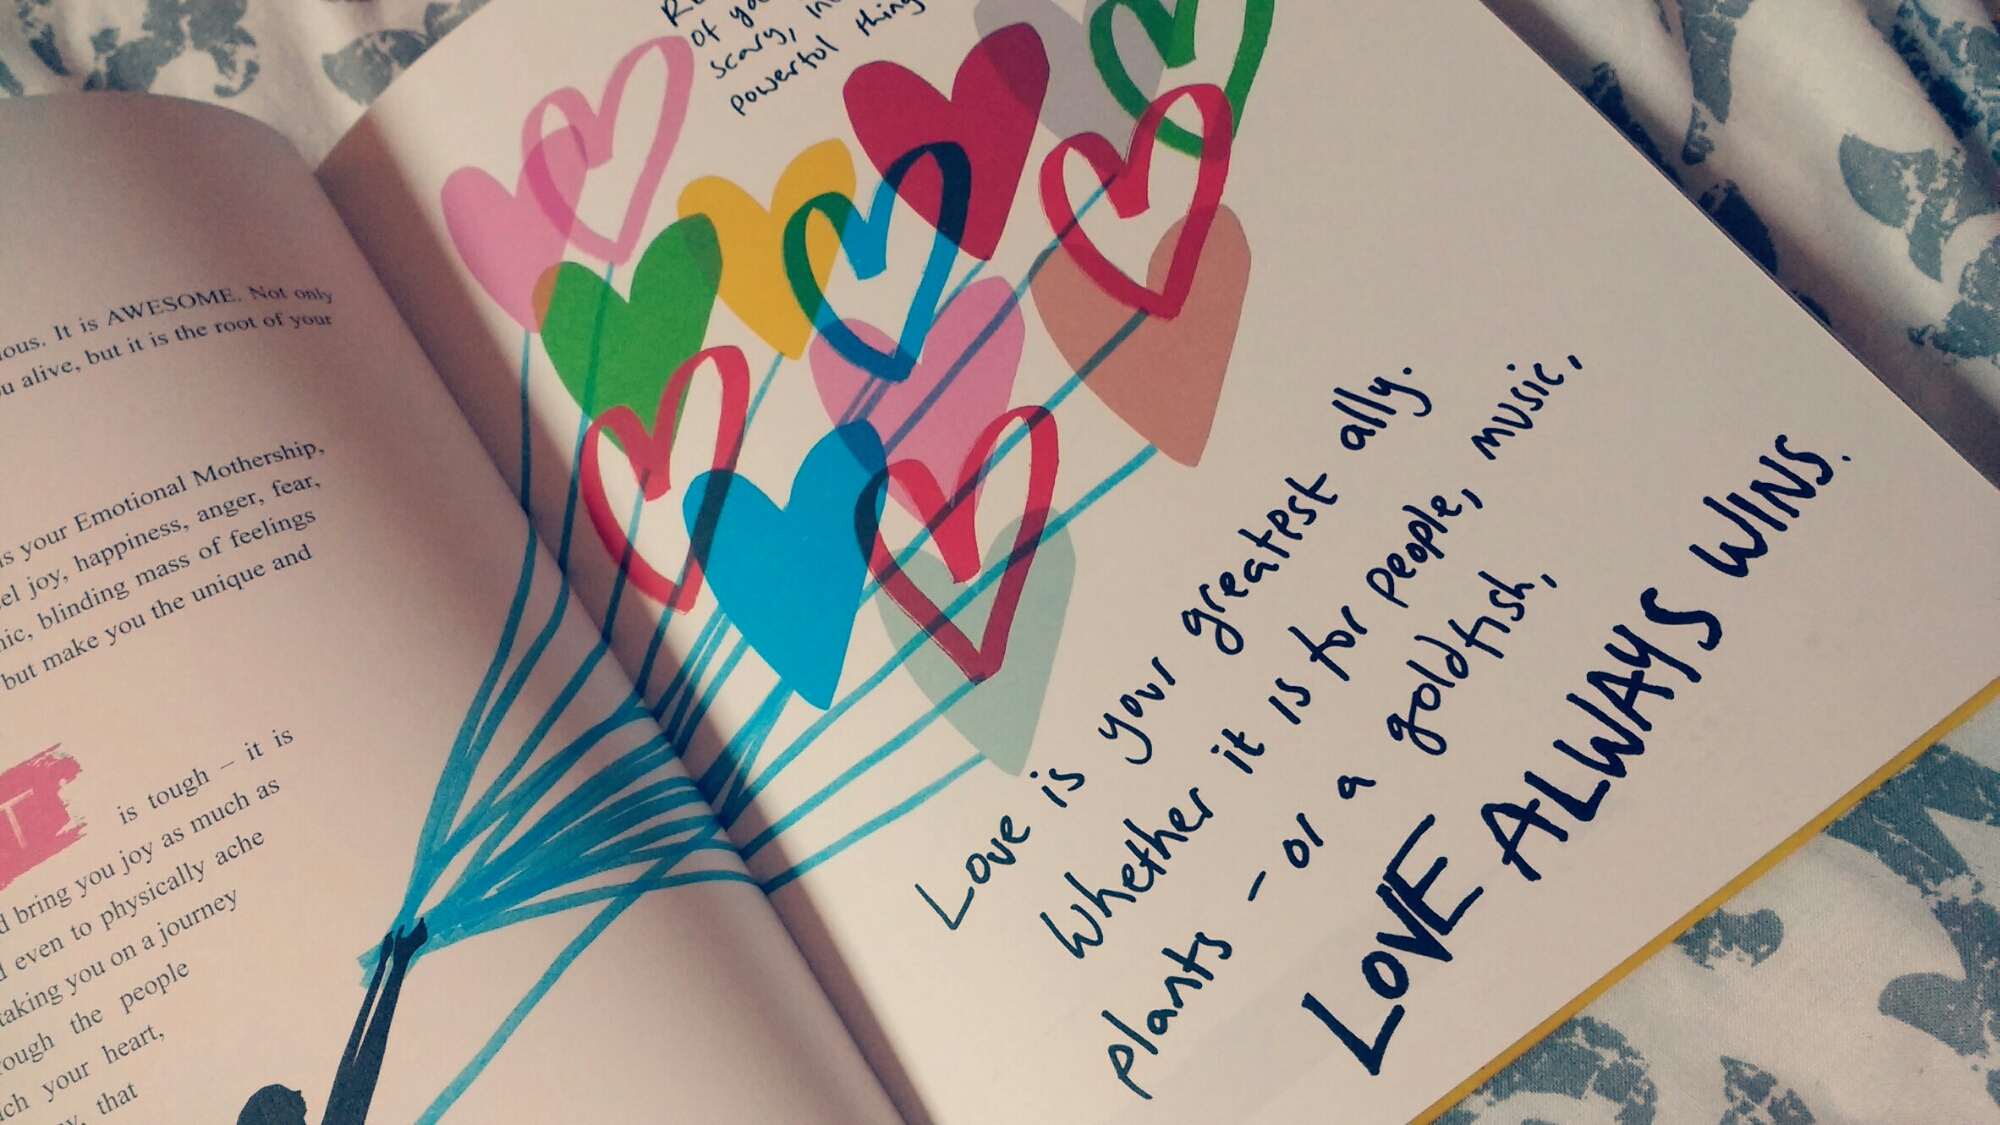 ious. It is AWESOME. Not only
u alive, but it is the root of your
s your Emotional Mothership,
el joy, happiness, anger, fear,
nic, blinding mass of feelings
but make you the unique and
T is tough – it is
d bring you joy as much as
d even to physically ache
taking you on a journey
rough the people
ch your heart,
that
of
scary,
powerful thing
Love is your greatest ally.
Whether it is for people, music,
plants - or a goldfish,
LOVE ALWAYS WINS.